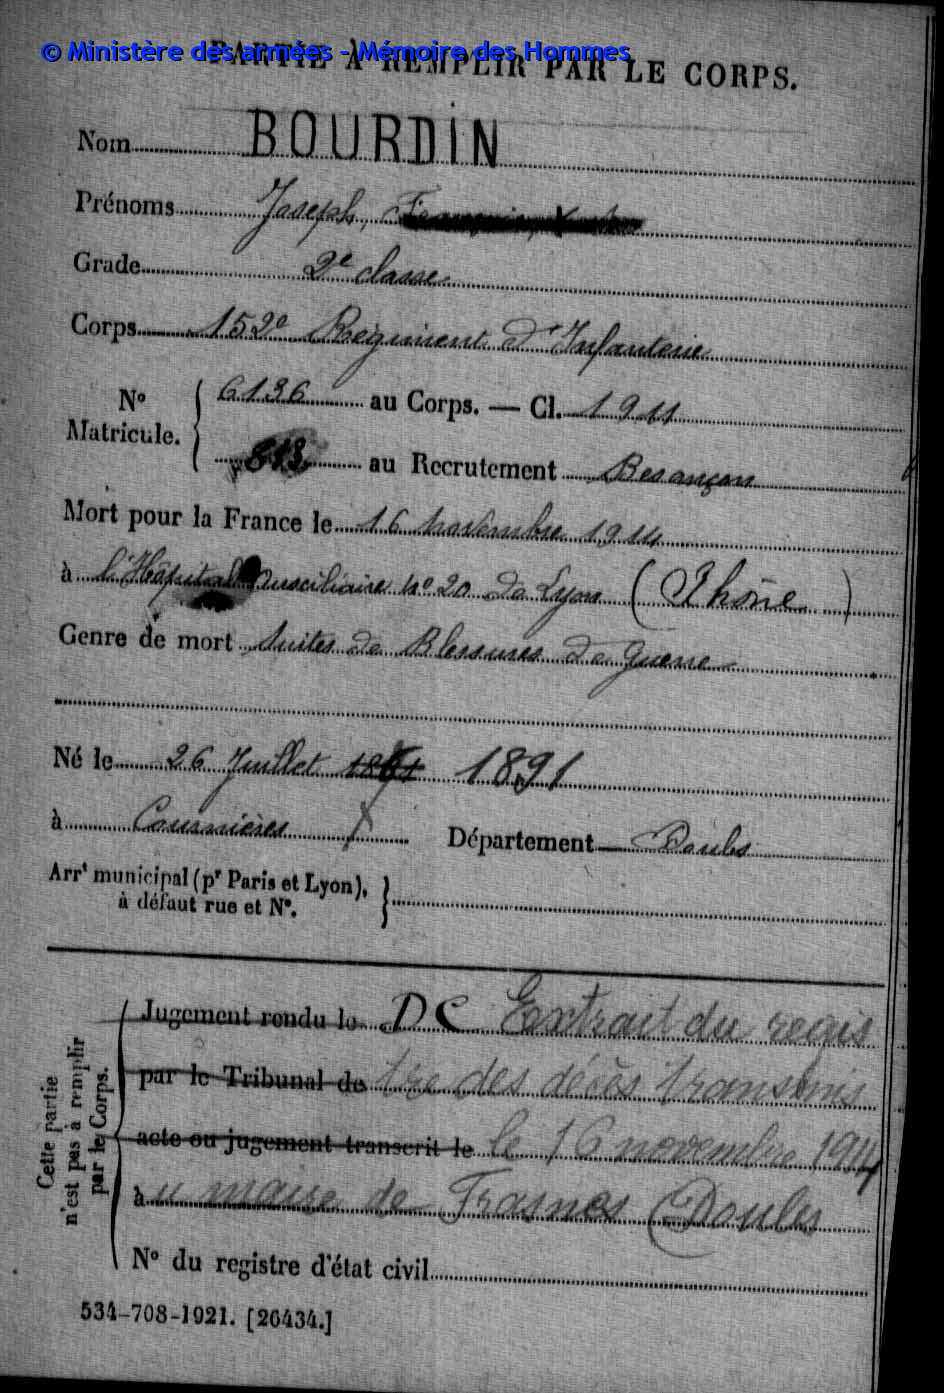 © Ministère des armées - Mémoire des Hommes
PARTIE À REMPLIR PAR LE CORPS.
Nom BOURDIN
Prénoms Joseph,
Grade 2e classe
Corps 152e Régiment d'Infanterie
No Matricule. { 6136 au Corps. — Cl. 1911
813 au Recrutement Besançon
Mort pour la France le 16 novembre 1914
à l'Hôpital auxiliaire no 20 de Lyon (Rhône)
Genre de mort Suites de Blessures de guerre
Né le 26 Juillet 1891
à Département Doubs
Arrt municipal (pr Paris et Lyon),
à défaut rue et No.
Cette partie
n'est pas à remplir
par le Corps.
Jugement rendu le DC Extrait du regis
par le Tribunal de tre des décès transmis
acte ou jugement transcrit le le 16 novembre 1914
à u maire de Frasnes (Doubs
No du registre d'état civil
534-708-1921. [26434.]